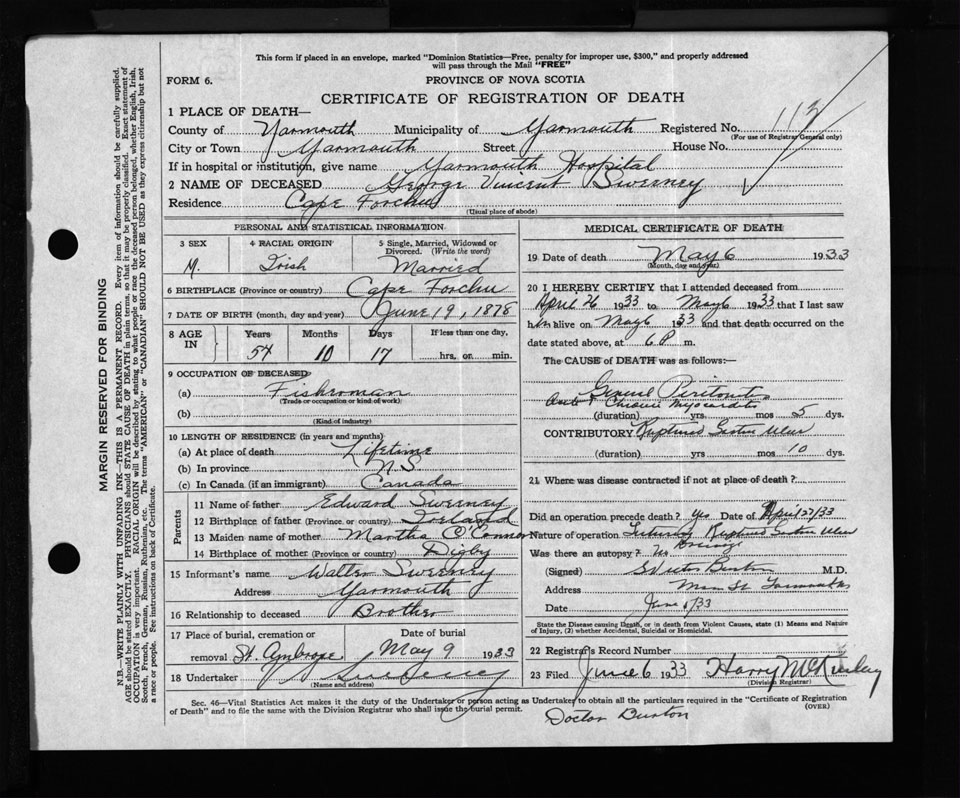 This form if placed in an envelope, marked "Dominion Statistics—Free, penalty for improper use, $300," and properly addressed
will pass through the Mail "FREE"
FORM 6.
PROVINCE OF NOVA SCOTIA
CERTIFICATE OF REGISTRATION OF DEATH
1 PLACE OF DEATH—
County of Yarmouth Municipality of Yarmouth Registered No. 112
(For use of Registrar General only)
City or Town Yarmouth Street House No.
If in hospital or institution, give name Yarmouth Hospital
2 NAME OF DECEASED George Vincent Sweeney
Residence Cape Forchu
(Usual place of abode)
PERSONAL AND STATISTICAL INFORMATION
3 SEX 4 RACIAL ORIGIN 5 Single, Married, Widowed or Divorced. (Write the word)
M. Irish Married
6 BIRTHPLACE (Province or country) Cape Forchu
7 DATE OF BIRTH (month, day and year) June 19, 1878
8 AGE IN Years Months Days If less than one day,
54 10 17 hrs. or min.
9 OCCUPATION OF DECEASED
(a) Fishroman
(Trade or occupation or kind of work)
(b)
(Kind of industry)
10 LENGTH OF RESIDENCE (in years and months)
(a) At place of death Lifetime
(b) In province N S
(c) In Canada (if an immigrant) Canada
Parents
11 Name of father Edward Sweeney
12 Birthplace of father (Province, or country) Ireland
13 Maiden name of mother Martha O'Connor
14 Birthplace of mother (Province or country) Digby
15 Informant's name Walter Sweeney
Address Yarmouth
16 Relationship to deceased Brother
17 Place of burial, cremation or removal St. Ambrose Date of burial May 9 1933
18 Undertaker
(Name and address)
MEDICAL CERTIFICATE OF DEATH
19 Date of death May 6 1933
(Month, day and year)
20 I HEREBY CERTIFY that I attended deceased from
April 26 1933 to May 6 1933 that I last saw
him alive on May 6 1933 and that death occurred on
date stated above, at 6 P m.
The CAUSE of DEATH was as follows:—
General Peritonitis
Chronic Myocarditis
(duration) yrs mos 5 dys.
CONTRIBUTORY Ruptured Ulcer
(duration) yrs mos 10 dys.
21 Where was disease contracted if not at place of death?
Did an operation precede death? yes Date of April 27/33
Nature of operation Suturing Ruptured Ulcer
Drainage
Was there an autopsy? No
(Signed) Burton M.D.
Address Main St Yarmouth
Date June /33
State the Disease causing Death, or in death from Violent Causes, state (1) Means and Nature
of Injury, (2) whether Accidental, Suicidal or Homicidal.
22 Registrar's Record Number
23 Filed June 6 1933 Harry
(Division Registrar)
Sec. 46—Vital Statistics Act makes it the duty of the Undertaker or person acting as Undertaker to obtain all the particulars required in the "Certificate of Registration
of Death" and to file the same with the Division Registrar who shall issue the burial permit. (OVER)
Doctor Burton
MARGIN RESERVED FOR BINDING
N.B.—WRITE PLAINLY WITH UNFADING INK—THIS IS A PERMANENT RECORD. Every item of information should be carefully supplied.
AGE should be stated EXACTLY. PHYSICIANS should STATE CAUSE OF DEATH in plain terms, so that it may be properly classified. Exact statement of
OCCUPATION is very important. RACIAL ORIGIN will be described by stating to what people or race the deceased person belonged, whether English, Irish,
Scotch, French, German, Russian, Ruthenian, etc. The terms "AMERICAN" or "CANADIAN" SHOULD NOT BE USED as they express citizenship but not
a race or people. See instructions on back of Certificate.